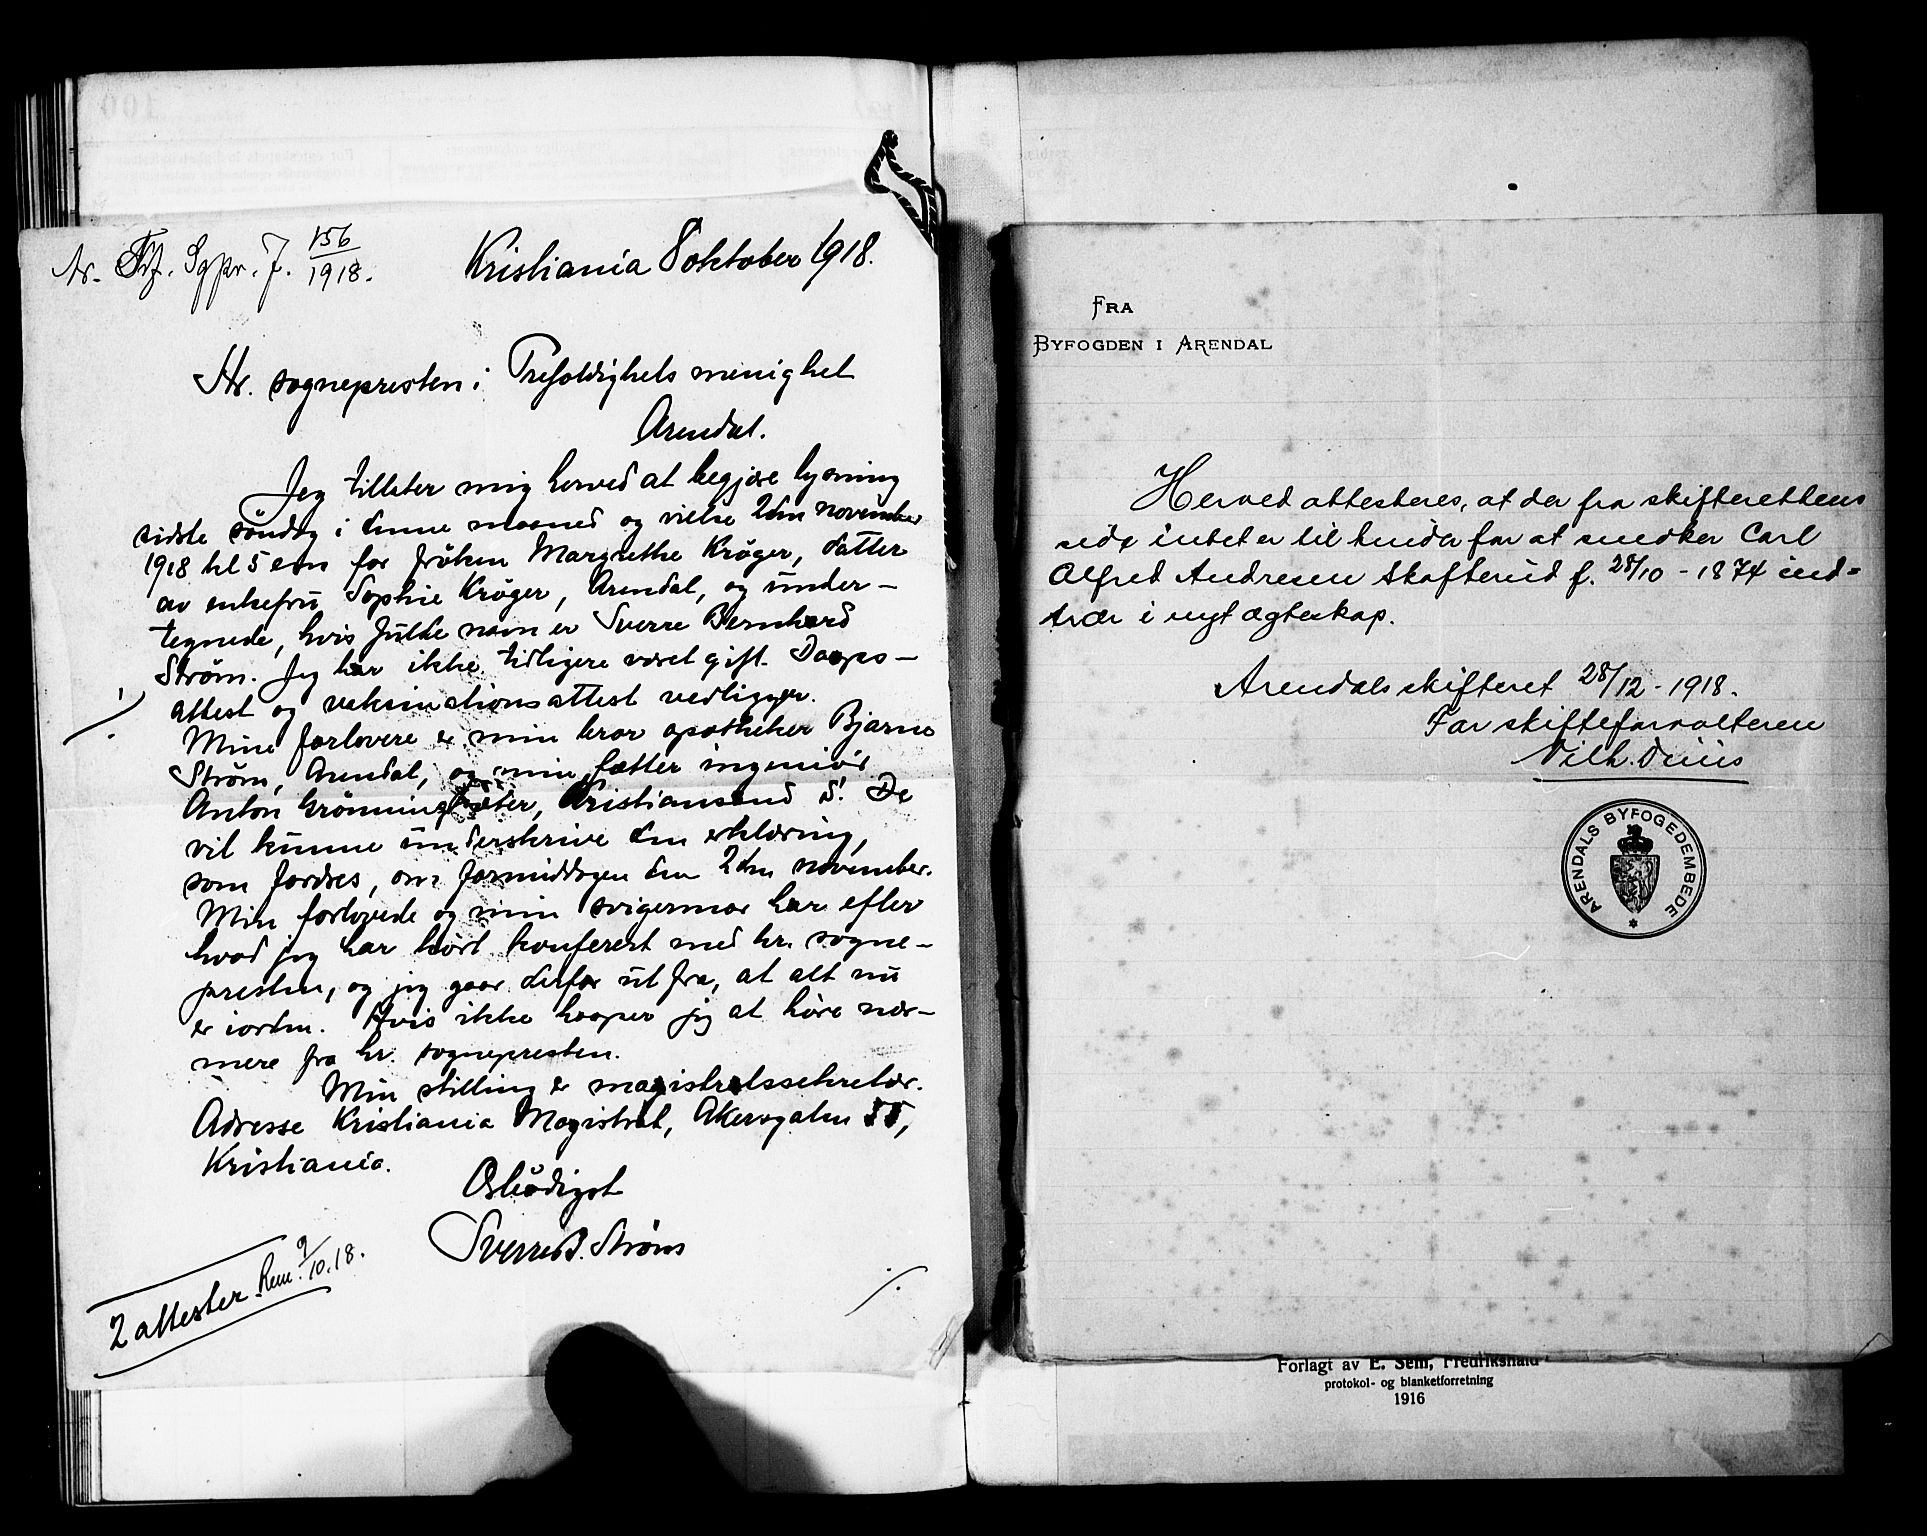 Nr. Trf. Sgpr. J. 156/1918.
Kristiania 8 oktober 1918.
Hr. sognepresten i Trefoldighets menighet
Arendal.
Jeg tillater mig herved at begjære lysning
sidste søndag i denne maaned og vielse 2den november
1918 kl 5 em for frøken Margrethe Krøger, datter
av enkefru Sophie Krøger, Arendal, og under-
tegnede, hvis fulde navn er Sverre Bernhard
Strøm. Jeg har ikke tidligere været gift. Daaps-
attest og vaksinationsattest vedligger.
Mine forlovere er min bror apotheker Bjarne
Strøm, Arendal, og min fætter ingeniør
Anton Grønningsæter, Kristiansand S. De
vil kunne underskrive den erklæring,
som fordres, om formiddagen den 2den november.
Min forlovede og min svigermor har efter
hvad jeg har hørt konferert med hr. sogne-
presten, og jeg gaar derfor ut fra, at alt nu
er iorden. Hvis ikke haaper jeg at høre nær-
mere fra hr. sognepresten.
Min stilling er magistratssekretær.
Adresse Kristiania Magistrat, Akersgaten 55,
Kristiania.
Ærbødigst
Sverre B. Strøm
2 attester. 9/10.18.
FRA
BYFOGDEN I ARENDAL
Herved attesteres, at der fra skifterettens
side intet er til hinder for at snedker Carl
Alfred Andresen Skofterud f. 28/10 - 1874 ind-
trær i nyt ægteskap.
Arendals skifteret 28/12 - 1918.
For skifteforvalteren
Vilh. Duus
ARENDALS BYFOGEDEMBEDE
Forlagt av E. Sem, Fredrikshald
protokol- og blanketforretning
1916